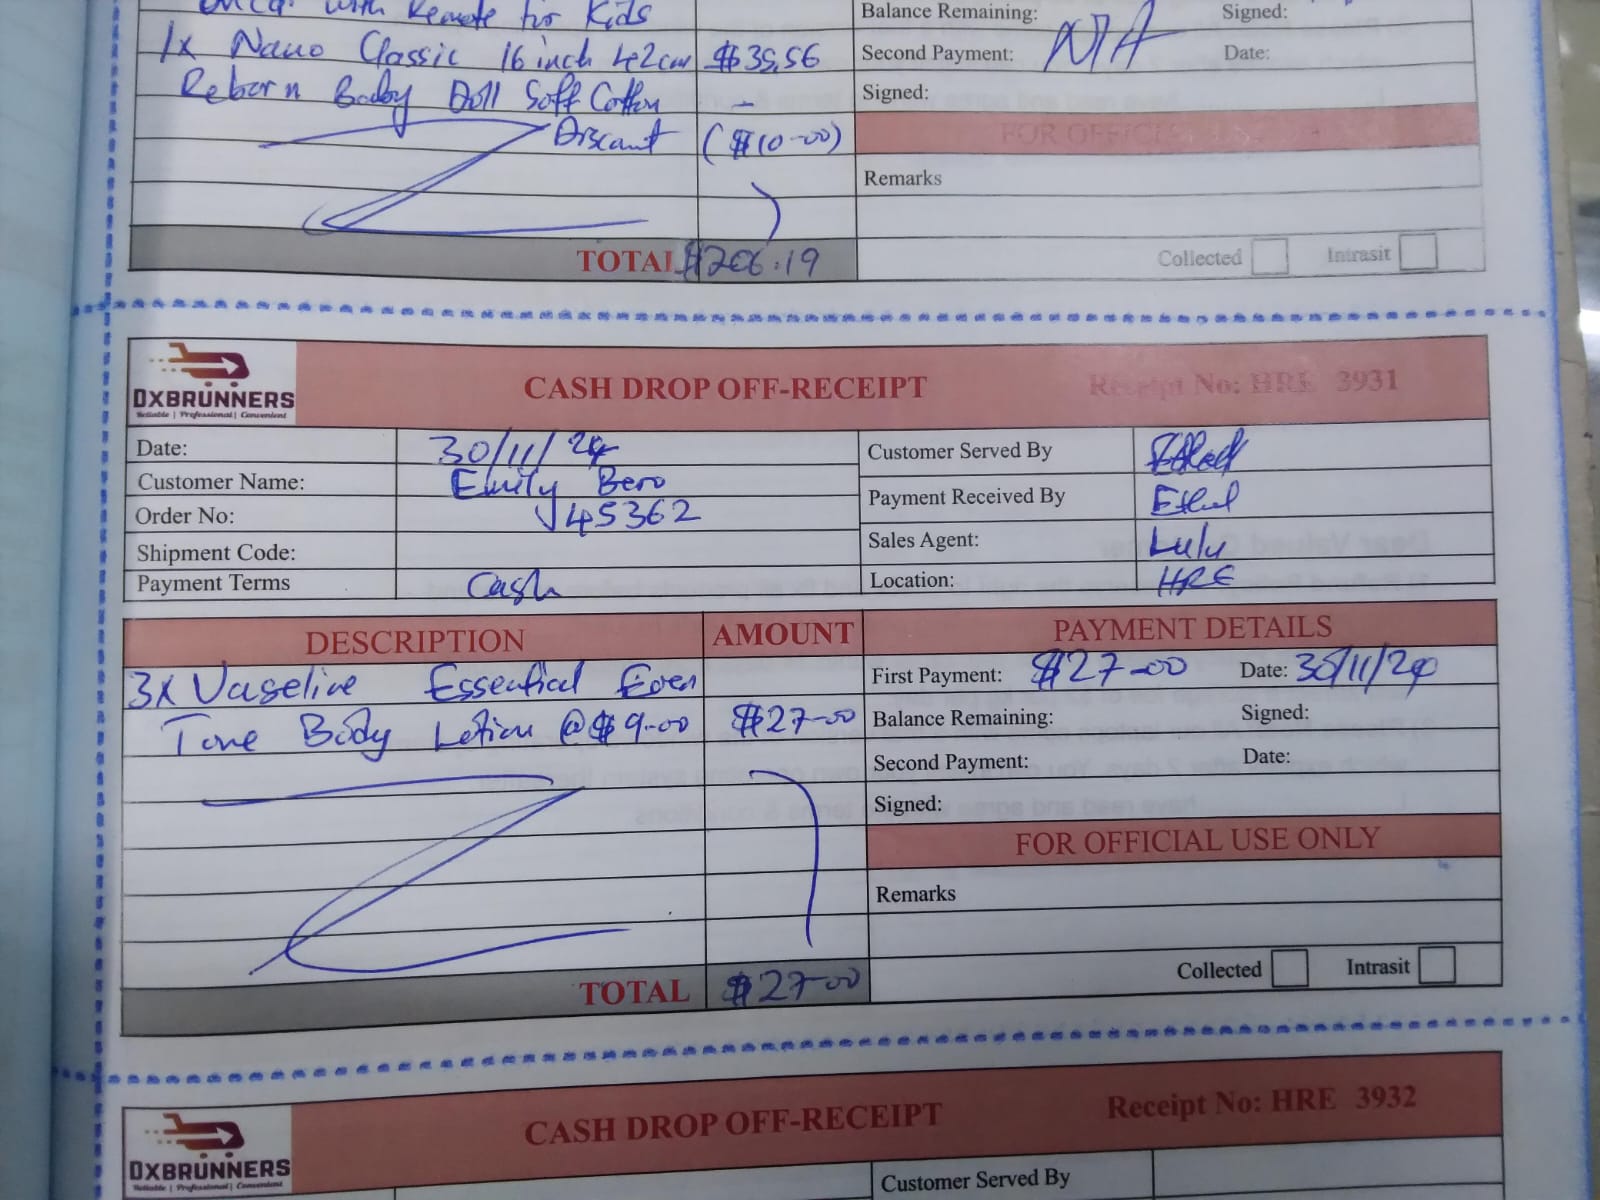 with Remote for Kids
Balance Remaining:
Signed:
1x Nano Classic 16 inch 42cm $35,56
Second Payment: N/A Date:
Reborn Baby Doll Soft Cotton -
Signed:
Discount ($10-00)
FOR OFFICIAL
Remarks
TOTAL $206.19
Collected Intrasit
OXBRUNNERS
Reliable | Professional | Convenient
CASH DROP OFF-RECEIPT
Receipt No: HRE 3931
Date: 30/11/24
Customer Served By
Customer Name: Emily Bero
Payment Received By Ethel
Order No: J45362
Sales Agent: Lulu
Shipment Code:
Payment Terms Cash
Location: HRE
DESCRIPTION AMOUNT PAYMENT DETAILS
3x Vaseline Essential Even
First Payment: $27-00 Date: 30/11/24
Tone Body Lotion @ $9-00 $27-00
Balance Remaining: Signed:
Second Payment: Date:
Signed:
FOR OFFICIAL USE ONLY
Remarks
Collected Intrasit
TOTAL $27-00
OXBRUNNERS
Reliable | Professional | Convenient
CASH DROP OFF-RECEIPT
Receipt No: HRE 3932
Customer Served By